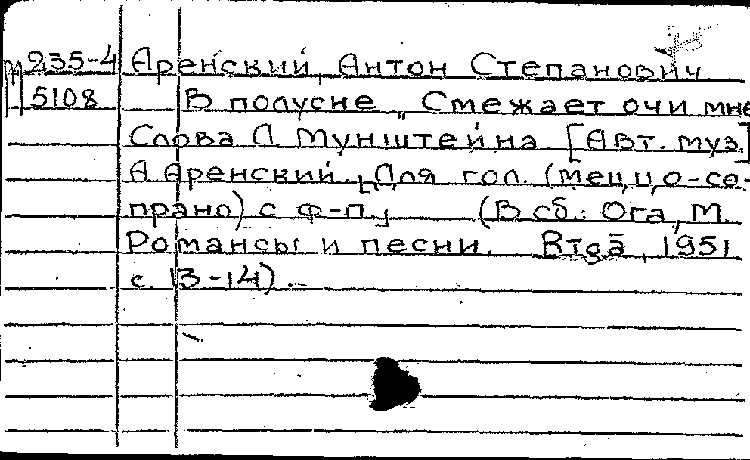 М 235-4 Аренский, Антон Степанович
5108 В полусне „Смежает очи мне
Слова Л. Мунштейна [Авт. муз.]
А. Аренский. [Для гол. (меццо-со-
прано) с ф-п.] (В сб.: Ога, М.
Романсы и песни. Rīgā, 1951
с. 13-14). –